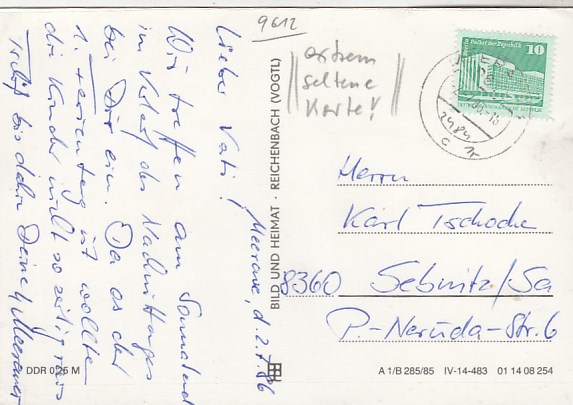 9612
extrem
seltene
Karte!
Berlin, Palast der Republik
10
Meerane, d. 2.7.86
Lieber Vati!
Wir treffen am Sonnabend
im Verlauf des Nachmittages
bei Dir ein. Da es der
1. Ferientag ist wollten
die Kinder nicht so zeitig raus
Tschüß bis dahin Deine 4 Meeraner
BILD UND HEIMAT · REICHENBACH (VOGTL)
Herrn
Karl Tschoche
8360 Sebnitz/Sa
P.-Neruda-Str. 6
DDR 0,25 M
A 1/B 285/85 IV-14-483 01 14 08 254